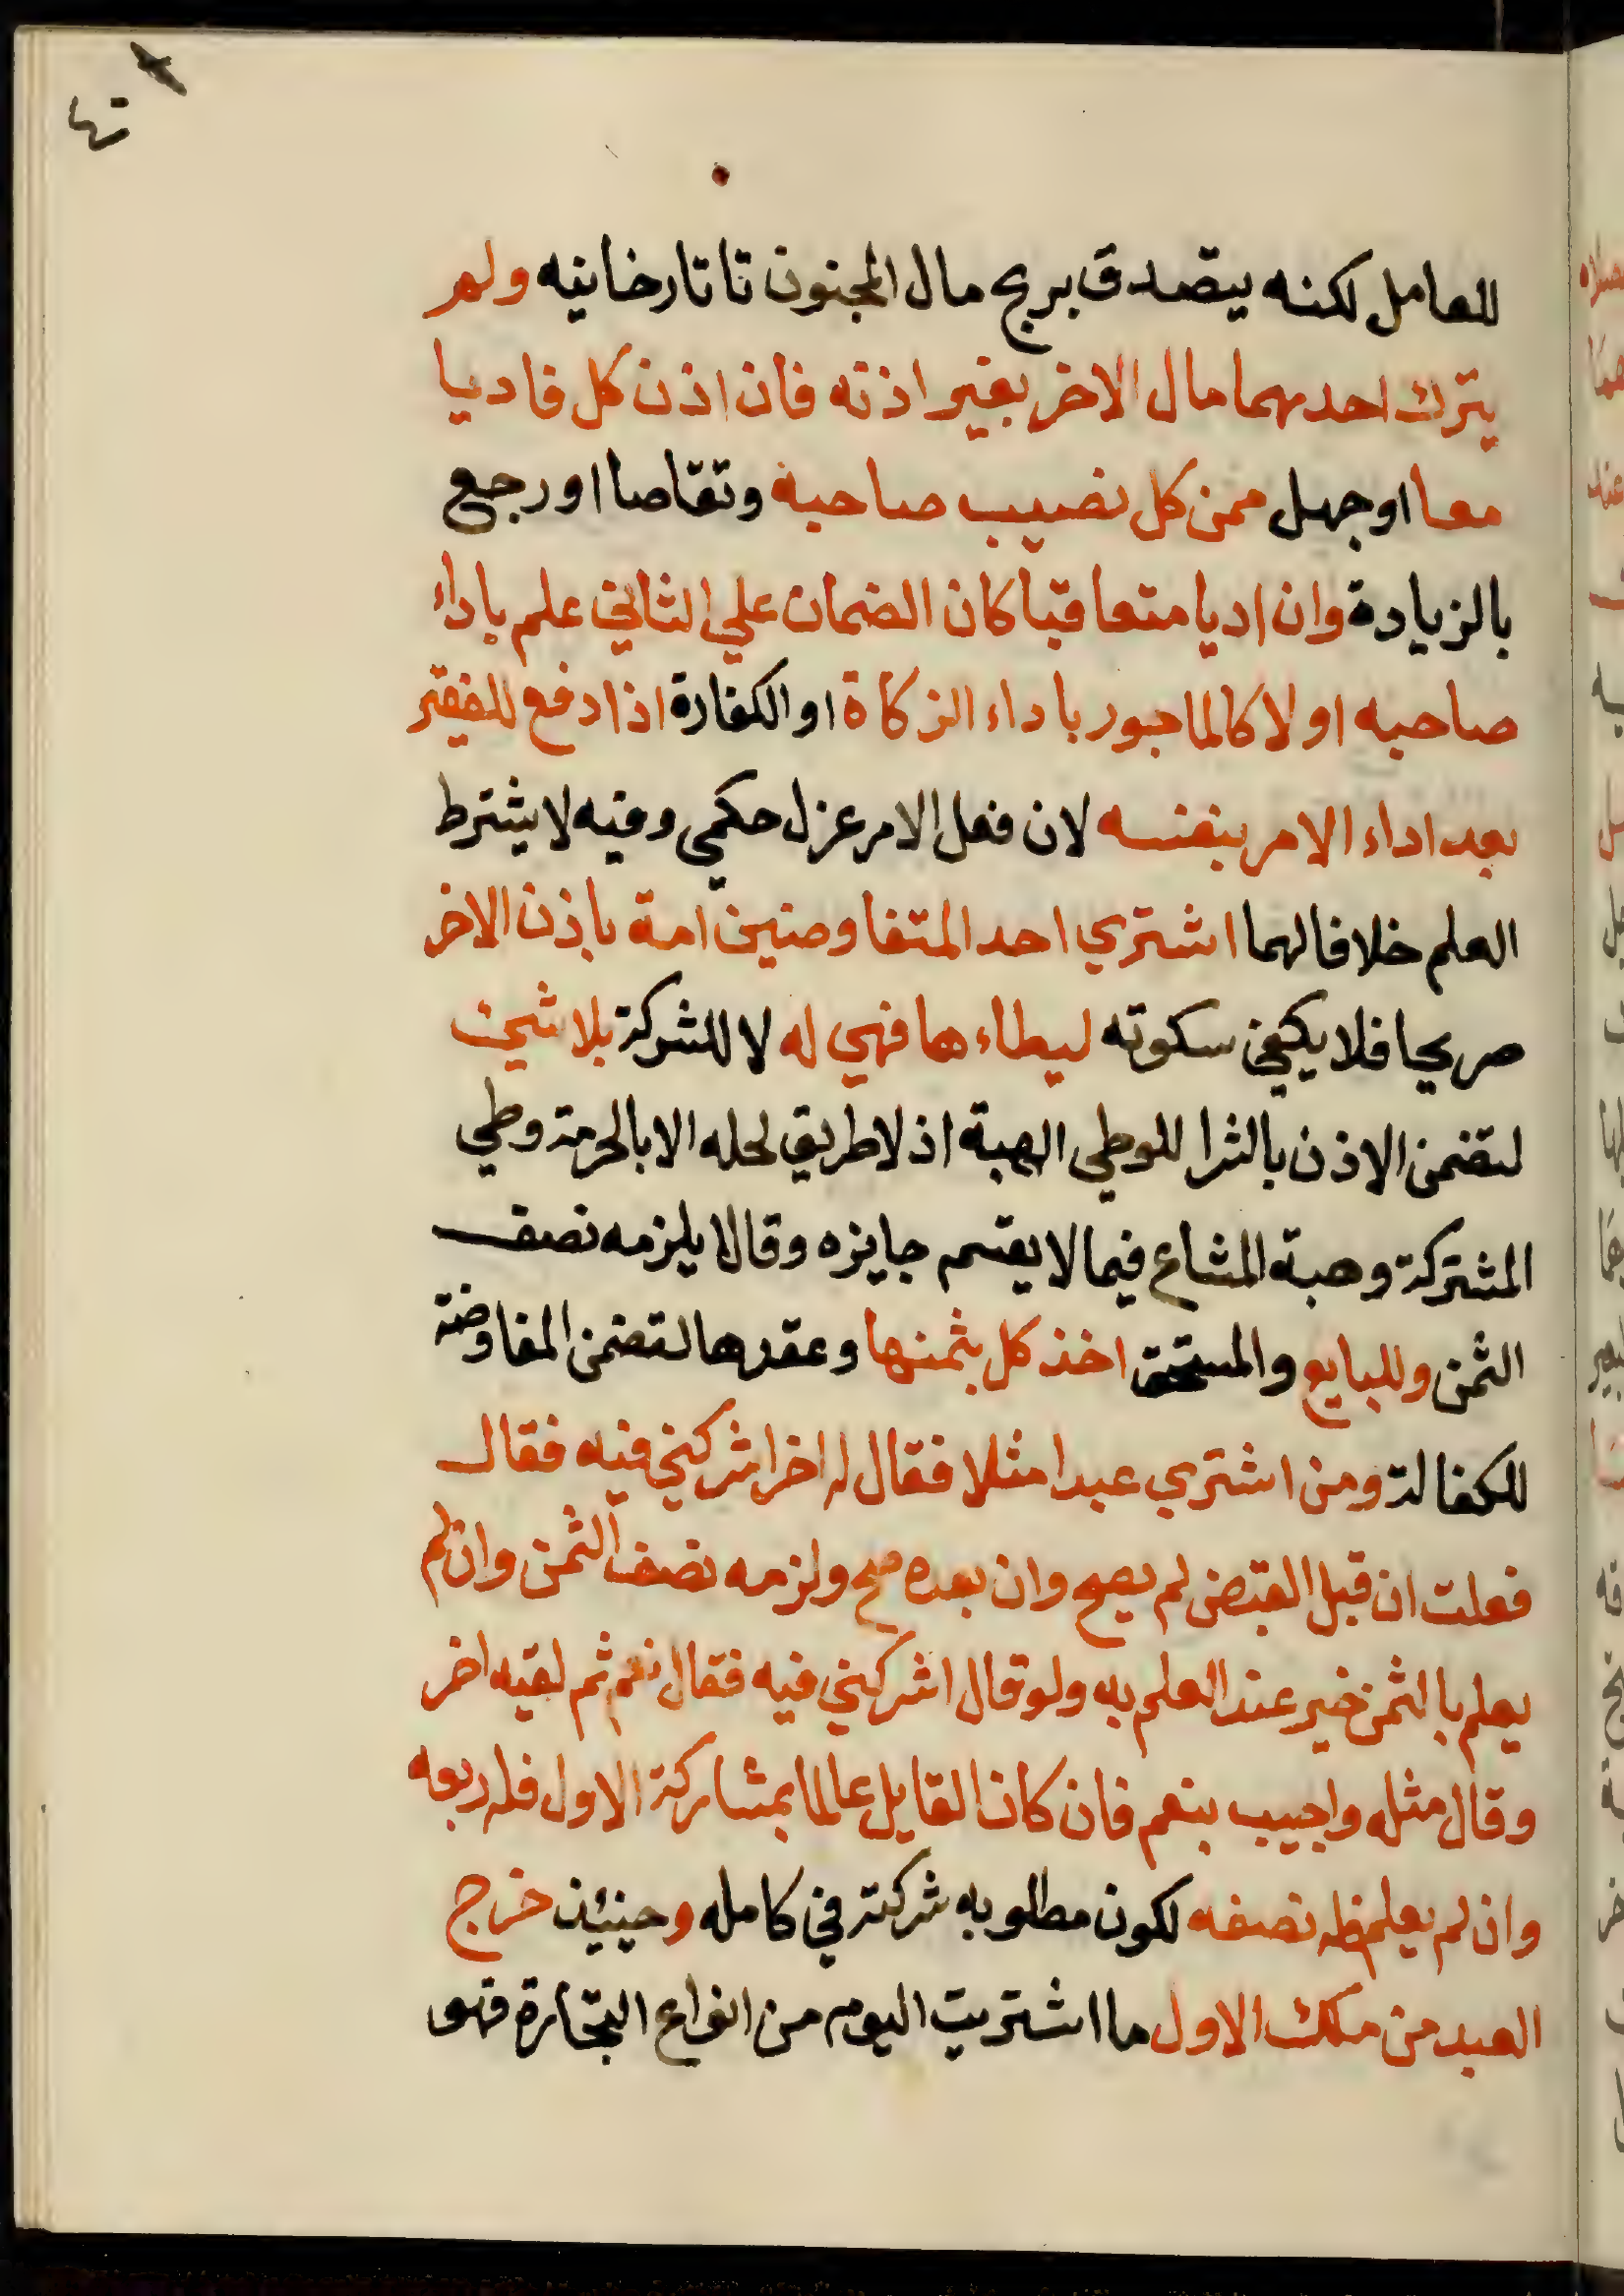 للعامل لكنه يتصدق بربح مال المجنون تاتارخانيه ولم
يترك احدهما مال الاخر بغير اذنه فان اذن كل فاديا
معا او جهل ضمن كل نصيب صاحبه وتقاصا او رجع
بالزيادة وان اديا متعاقبا كان الضمان علي الثاني علم باداء
صاحبه او لا كالماجور باداء الزكاة او الكفارة اذا دفع للفقير
بعد اداء الامر بنفسه لان فعل الامر عزل حكمي وفيه لا يشترط
العلم خلافا لهما اشتري احد المتفاوضين امة باذن الاخر
صريحا فلا يكفي سكوته ليطاءها فهي له لا للشركة بلا شيئ
لتضمن الاذن بالشرا للوطي الهبة اذ لا طريق لحله الا بالحرمة وطي
المشتركة وهبة المشاع فيما لا يقسم جايزه وقالا يلزمه نصف
الثمن وللبايع والمستحق اخذ كل بثمنها وعقرها لتضمن المفاوضة
للكفالة ومن اشتري عبدا مثلا فقال له اخر اشركني فيه فقال
فعلت ان قبل القبض لم يصح وان بعده صح ولزمه نصف الثمن وان لم
يعلم بالثمن خير عند العلم به ولو قال اشركني فيه فقال نعم ثم لقيه اخر
وقال مثله واجيب بنعم فان كان القايل عالما بمشاركة الاول فله ربعه
وان لم يعلم فله نصفه لكون مطلوبه شركته في كامله وحينئذ خرج
العبد من ملك الاول ما اشتريت اليوم من انواع التجارة فهو